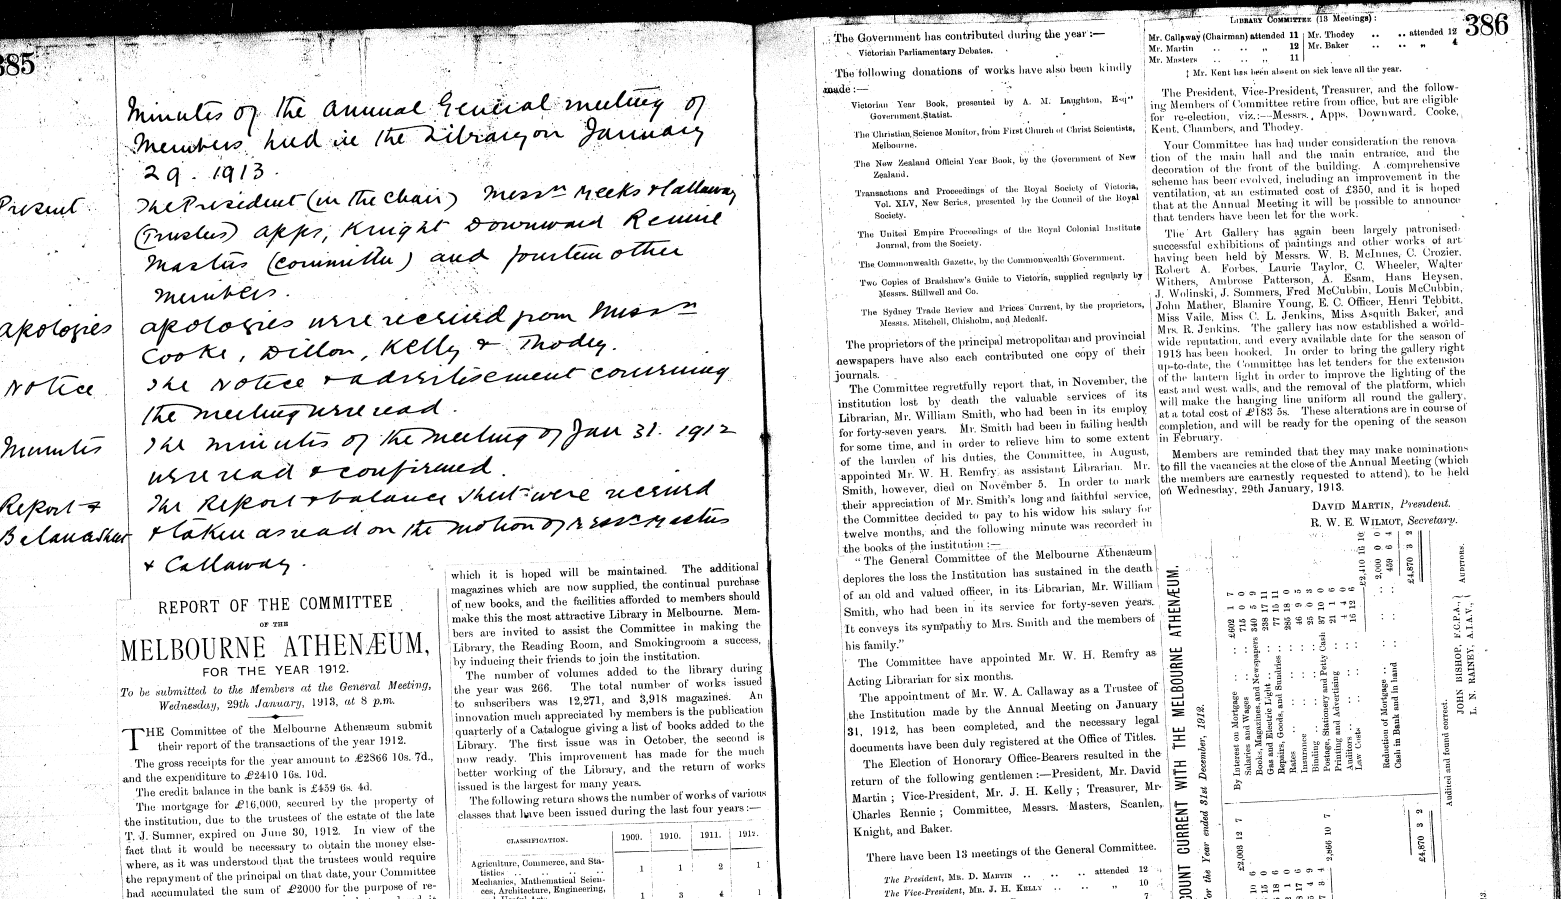 385
Minutes of the Annual General meeting of
Members held in the Library on January
29. 1913.
Present
The President (in the chair) Messrs Meeks & Callaway
(Trustees) Apps, Knight Downward Rennie
Masters (Committee) and fourteen other
members.
Apologies
Apologies were received from Messrs
Cooke, Dillon, Kelly & Thodey.
Notice
The Notice & advertisement convening
the meeting were read.
Minutes
The minutes of the meeting of Jan 31. 1912
were read & confirmed.
Report &
Balance Sheet
The Report & balance sheet were received
& taken as read on the motion of Messrs Masters
& Callaway.
REPORT OF THE COMMITTEE
OF THE
MELBOURNE ATHENÆUM,
FOR THE YEAR 1912.
To be submitted to the Members at the General Meeting,
Wednesday, 29th January, 1913, at 8 p.m.
THE Committee of the Melbourne Athenæum submit
their report of the transactions of the year 1912.
The gross receipts for the year amount to £2866 10s. 7d.,
and the expenditure to £2410 16s. 10d.
The credit balance in the bank is £459 6s. 4d.
The mortgage for £16,000, secured by the property of
the institution, due to the trustees of the estate of the late
T. J. Sumner, expired on June 30, 1912. In view of the
fact that it would be necessary to obtain the money else-
where, as it was understood that the trustees would require
the repayment of the principal on that date, your Committee
had accumulated the sum of £2000 for the purpose of re-
which it is hoped will be maintained. The additional
magazines which are now supplied, the continual purchase
of new books, and the facilities afforded to members should
make this the most attractive Library in Melbourne. Mem-
bers are invited to assist the Committee in making the
Library, the Reading Room, and Smokingroom a success,
by inducing their friends to join the institution.
The number of volumes added to the library during
the year was 266. The total number of works issued
to subscribers was 12,271, and 3,918 magazines. An
innovation much appreciated by members is the publication
quarterly of a Catalogue giving a list of books added to the
Library. The first issue was in October, the second is
now ready. This improvement has made for the much
better working of the Library, and the return of works
issued is the largest for many years.
The following return shows the number of works of various
classes that have been issued during the last four years:—
CLASSIFICATION. 1909. 1910. 1911. 1912.
Agriculture, Commerce, and Sta-
tistics .. .. .. 1 1 2 1
Mechanics, Mathematical Scien-
ces, Architecture, Engineering,
and Useful Arts 1 3 4 1
386
The Government has contributed during the year :—
Victorian Parliamentary Debates.
The following donations of works have also been kindly
made :—
Victorian Year Book, presented by A. M. Laughton, Esq.,
Government Statist.
The Christian Science Monitor, from First Church of Christ Scientists,
Melbourne.
The New Zealand Official Year Book, by the Government of New
Zealand.
Transactions and Proceedings of the Royal Society of Victoria,
Vol. XLV, New Series, presented by the Council of the Royal
Society.
The United Empire Proceedings of the Royal Colonial Institute
Journal, from the Society.
The Commonwealth Gazette, by the Commonwealth Government.
Two Copies of Bradshaw's Guide to Victoria, supplied regularly by
Messrs. Stillwell and Co.
The Sydney Trade Review and Prices Current, by the proprietors,
Messrs. Mitchell, Chisholm, and Medcalf.
The proprietors of the principal metropolitan and provincial
newspapers have also each contributed one copy of their
journals.
The Committee regretfully report that, in November, the
institution lost by death the valuable services of its
Librarian, Mr. William Smith, who had been in its employ
for forty-seven years. Mr. Smith had been in failing health
for some time, and in order to relieve him to some extent
of the burden of his duties, the Committee, in August,
appointed Mr. W. H. Remfry as assistant Librarian. Mr.
Smith, however, died on November 5. In order to mark
their appreciation of Mr. Smith's long and faithful service,
the Committee decided to pay to his widow his salary for
twelve months, and the following minute was recorded in
the books of the institution :—
"The General Committee of the Melbourne Athenæum
deplores the loss the Institution has sustained in the death
of an old and valued officer, in its Librarian, Mr. William
Smith, who had been in its service for forty-seven years.
It conveys its sympathy to Mrs. Smith and the members of
his family."
The Committee have appointed Mr. W. H. Remfry as
Acting Librarian for six months.
The appointment of Mr. W. A. Callaway as a Trustee of
the Institution made by the Annual Meeting on January
31, 1912, has been completed, and the necessary legal
documents have been duly registered at the Office of Titles.
The Election of Honorary Office-Bearers resulted in the
return of the following gentlemen :—President, Mr. David
Martin ; Vice-President, Mr. J. H. Kelly ; Treasurer, Mr.
Charles Rennie ; Committee, Messrs. Masters, Scanlen,
Knight, and Baker.
There have been 13 meetings of the General Committee.
The President, MR. D. MARTIN .. .. .. attended 12
The Vice-President, MR. J. H. KELLY .. .. .. „ 10
LIBRARY COMMITTEE (13 Meetings) :
Mr. Callaway (Chairman) attended 11 Mr. Thodey .. .. attended 12
Mr. Martin .. .. „ 12 Mr. Baker .. .. „ 4
Mr. Masters .. .. „ 11
‡ Mr. Kent has been absent on sick leave all the year.
The President, Vice-President, Treasurer, and the follow-
ing Members of Committee retire from office, but are eligible
for re-election, viz.:—Messrs. Apps, Downward, Cooke,
Kent, Chambers, and Thodey.
Your Committee has had under consideration the renova-
tion of the main hall and the main entrance, and the
decoration of the front of the building. A comprehensive
scheme has been evolved, including an improvement in the
ventilation, at an estimated cost of £350, and it is hoped
that at the Annual Meeting it will be possible to announce
that tenders have been let for the work.
The Art Gallery has again been largely patronised,
successful exhibitions of paintings and other works of art
having been held by Messrs. W. B. McInnes, C. Crozier,
Robert A. Forbes, Laurie Taylor, C. Wheeler, Walter
Withers, Ambrose Patterson, A. Esam, Hans Heysen,
J. Wolinski, J. Sommers, Fred McCubbin, Louis McCubbin,
John Mather, Blamire Young, E. C. Officer, Henri Tebbitt,
Miss Vaile, Miss C. L. Jenkins, Miss Asquith Baker, and
Mrs. R. Jenkins. The gallery has now established a world-
wide reputation, and every available date for the season of
1913 has been booked. In order to bring the gallery right
up-to-date, the Committee has let tenders for the extension
of the lantern light in order to improve the lighting of the
east and west walls, and the removal of the platform, which
will make the hanging line uniform all round the gallery,
at a total cost of £183 5s. These alterations are in course of
completion, and will be ready for the opening of the season
in February.
Members are reminded that they may make nominations
to fill the vacancies at the close of the Annual Meeting (which
the members are earnestly requested to attend), to be held
on Wednesday, 29th January, 1913.
DAVID MARTIN, President.
R. W. E. WILMOT, Secretary.
COUNT CURRENT WITH THE MELBOURNE ATHENÆUM.
For the Year ended 31st December, 1912.
£2,003 12 7
2,866 10 7
£4,870 3 2
By Interest on Mortgage .. £602 1 7
Salaries and Wages .. 715 0 0
Books, Magazines, and Newspapers 340 5 9
Gas and Electric Light .. 238 17 11
Repairs, Goods, and Sundries .. 77 15 11
Rates .. 285 18 0
Insurance .. 46 9 5
Binding .. 25 0 3
Postage, Stationery and Petty Cash 37 10 0
Printing and Advertising 21 1 6
Auditors .. 4 4 0
Law Costs .. 16 12 6
£2,410 16 10
Reduction of Mortgage .. 2,000 0 0
Cash in Bank and in hand 459 6 4
£4,870 3 2
Audited and found correct.
JOHN BISHOP, F.C.P.A.,
L. N. RAINEY, A.I.A.V.,
AUDITORS.